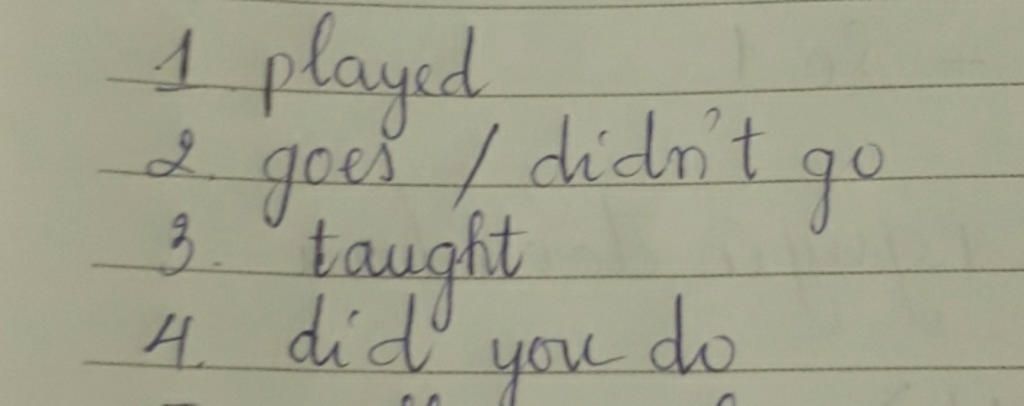 1 played
2. goes / didn't go
3. taught
4. did you do